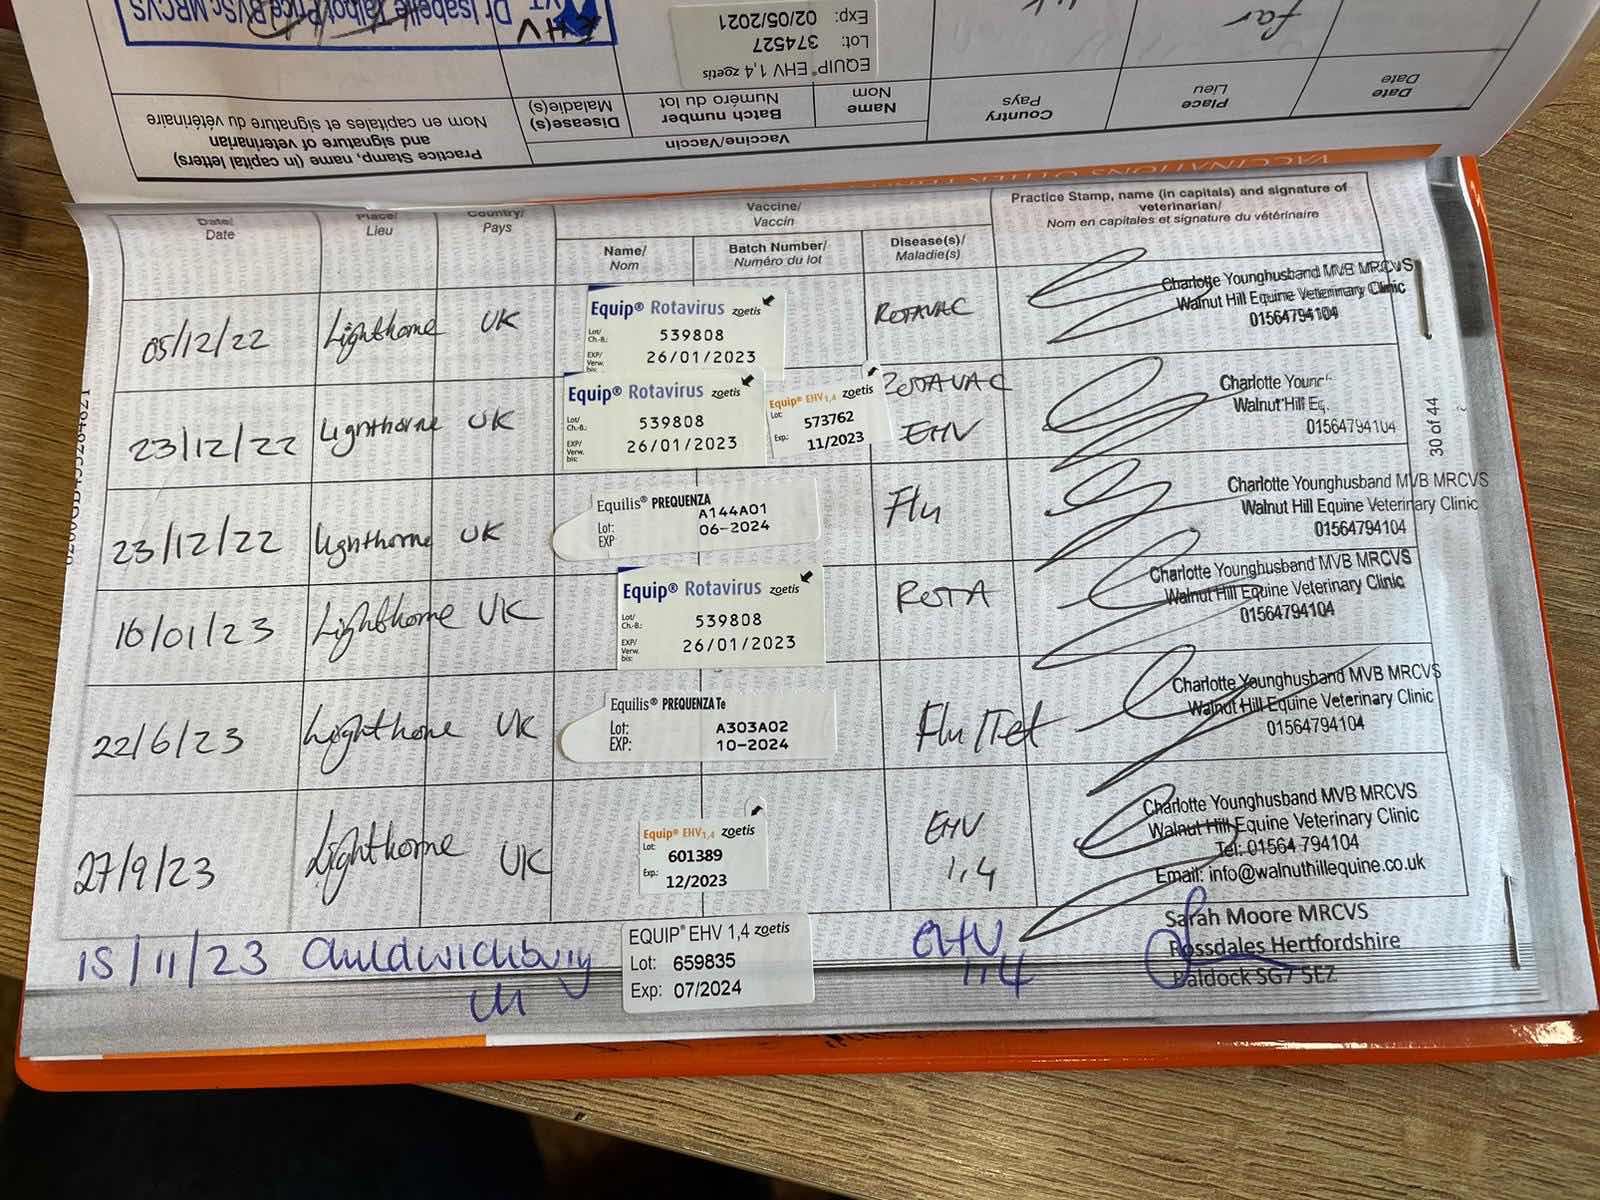 Dr Isabelle Talbot Price BVSc MRCVS
EHV
EQUIP® EHV 1,4 zoetis
Lot: 374527
Exp: 02/05/2021
far
UK
Date
Date
Place
Lieu
Country
Pays
Name
Nom
Batch number
Numéro du lot
Disease(s)
Maladie(s)
Vaccine/Vaccin
Practice Stamp, name (in capital letters)
and signature of veterinarian
Nom en capitales et signature du vétérinaire
Date/
Date
Place/
Lieu
Country/
Pays
Vaccine/
Vaccin
Name/
Nom
Batch Number/
Numéro du lot
Disease(s)/
Maladie(s)
Practice Stamp, name (in capitals) and signature of
veterinarian/
Nom en capitales et signature du vétérinaire
05/12/22 Lighthorne UK
Equip® Rotavirus zoetis
Lot/
Ch.-B.: 539808
EXP/
Verw.
bis: 26/01/2023
ROTAVAC
Charlotte Younghusband MVB MRCVS
Walnut Hill Equine Veterinary Clinic
01564794104
23/12/22 Lighthorne UK
Equip® Rotavirus zoetis
Lot/
Ch.-B.: 539808
EXP/
Verw.
bis: 26/01/2023
Equip® EHV1,4 zoetis
Lot: 573762
Exp.: 11/2023
ROTAVAC
EHV
Charlotte Youn
Walnut Hill Eq
01564794104
23/12/22 Lighthorne UK
Equilis® PREQUENZA
Lot: A144A01
EXP 06-2024
Flu
Charlotte Younghusband MVB MRCVS
Walnut Hill Equine Veterinary Clinic
01564794104
16/01/23 Lighthorne UK
Equip® Rotavirus zoetis
Lot/
Ch.-B.: 539808
EXP/
Verw.
bis: 26/01/2023
ROTA
Charlotte Younghusband MVB MRCVS
Walnut Hill Equine Veterinary Clinic
01564794104
22/6/23 Lighthorne UK
Equilis® PREQUENZA Te
Lot: A303A02
EXP: 10-2024
Flu/Tet
Charlotte Younghusband MVB MRCVS
Walnut Hill Equine Veterinary Clinic
01564794104
27/9/23 Lighthorne UK
Equip® EHV1,4 zoetis
Lot: 601389
Exp.: 12/2023
EHV
1,4
Charlotte Younghusband MVB MRCVS
Walnut Hill Equine Veterinary Clinic
Tel: 01564 794104
Email: info@walnuthillequine.co.uk
15/11/23
EQUIP® EHV 1,4 zoetis
Lot: 659835
Exp: 07/2024
EHV
1,4
Sarah Moore MRCVS
Rossdales Hertfordshire
Baldock SG7 5EZ
30 of 44